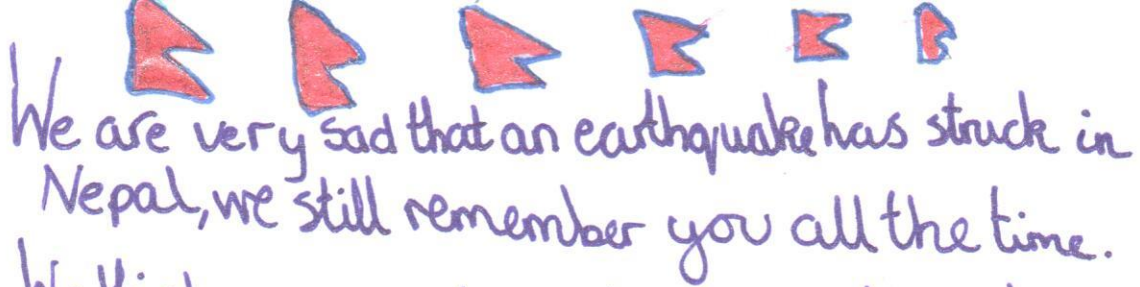 We are very sad that an earthquake has struck in
Nepal, we still remember you all the time.
We think